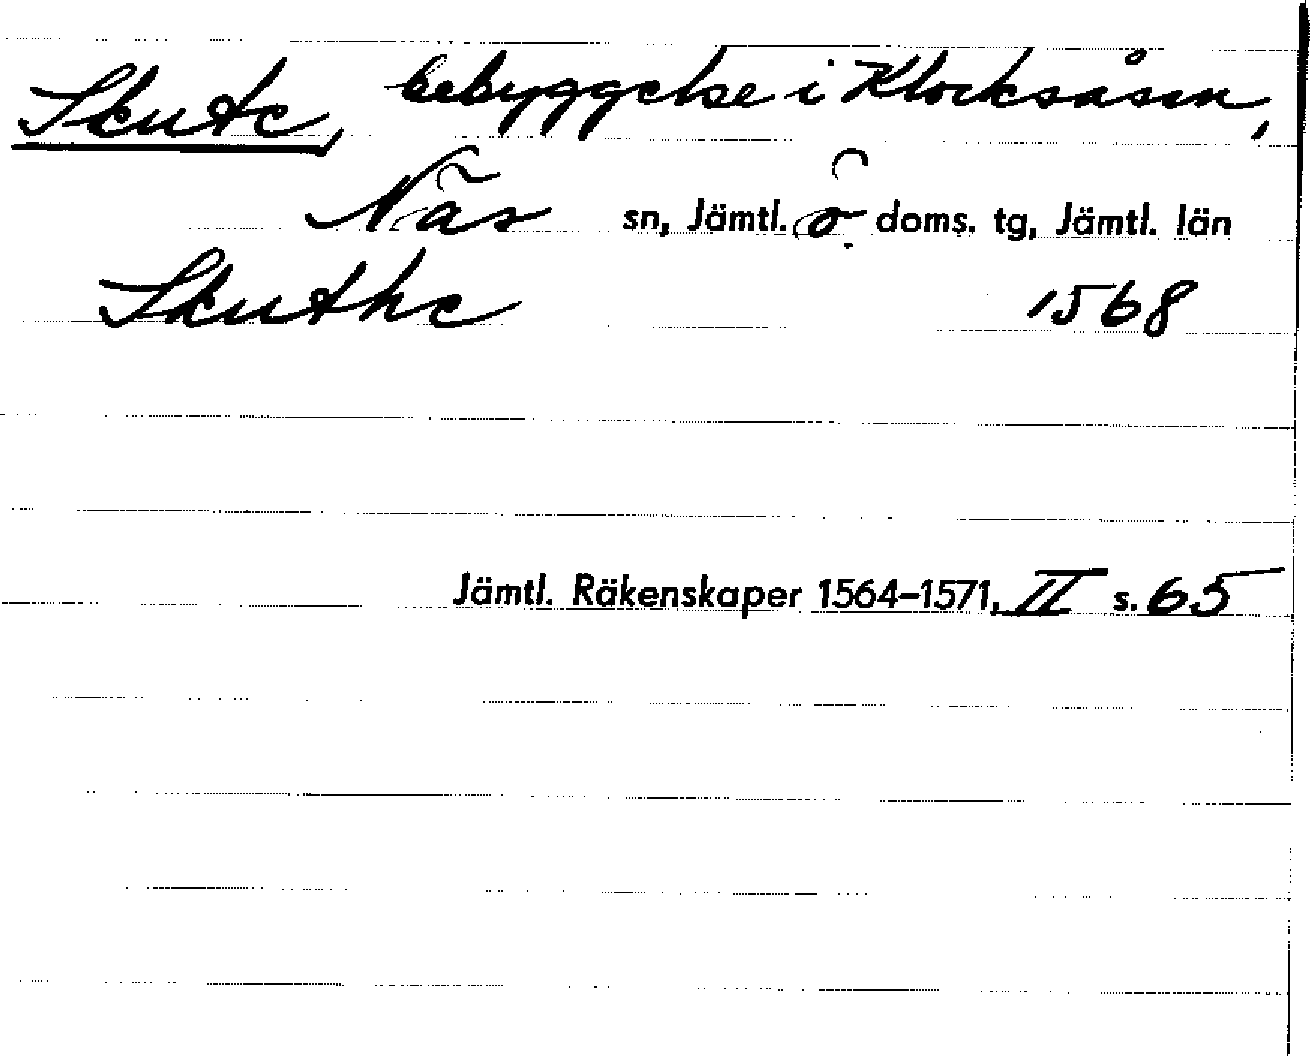 Skute, bebyggelse i Klocksåsen,
Näs sn, Jämtl. ö doms. tg, Jämtl. län
Skuthe 1568
Jämtl. Räkenskaper 1564–1571, II s. 65